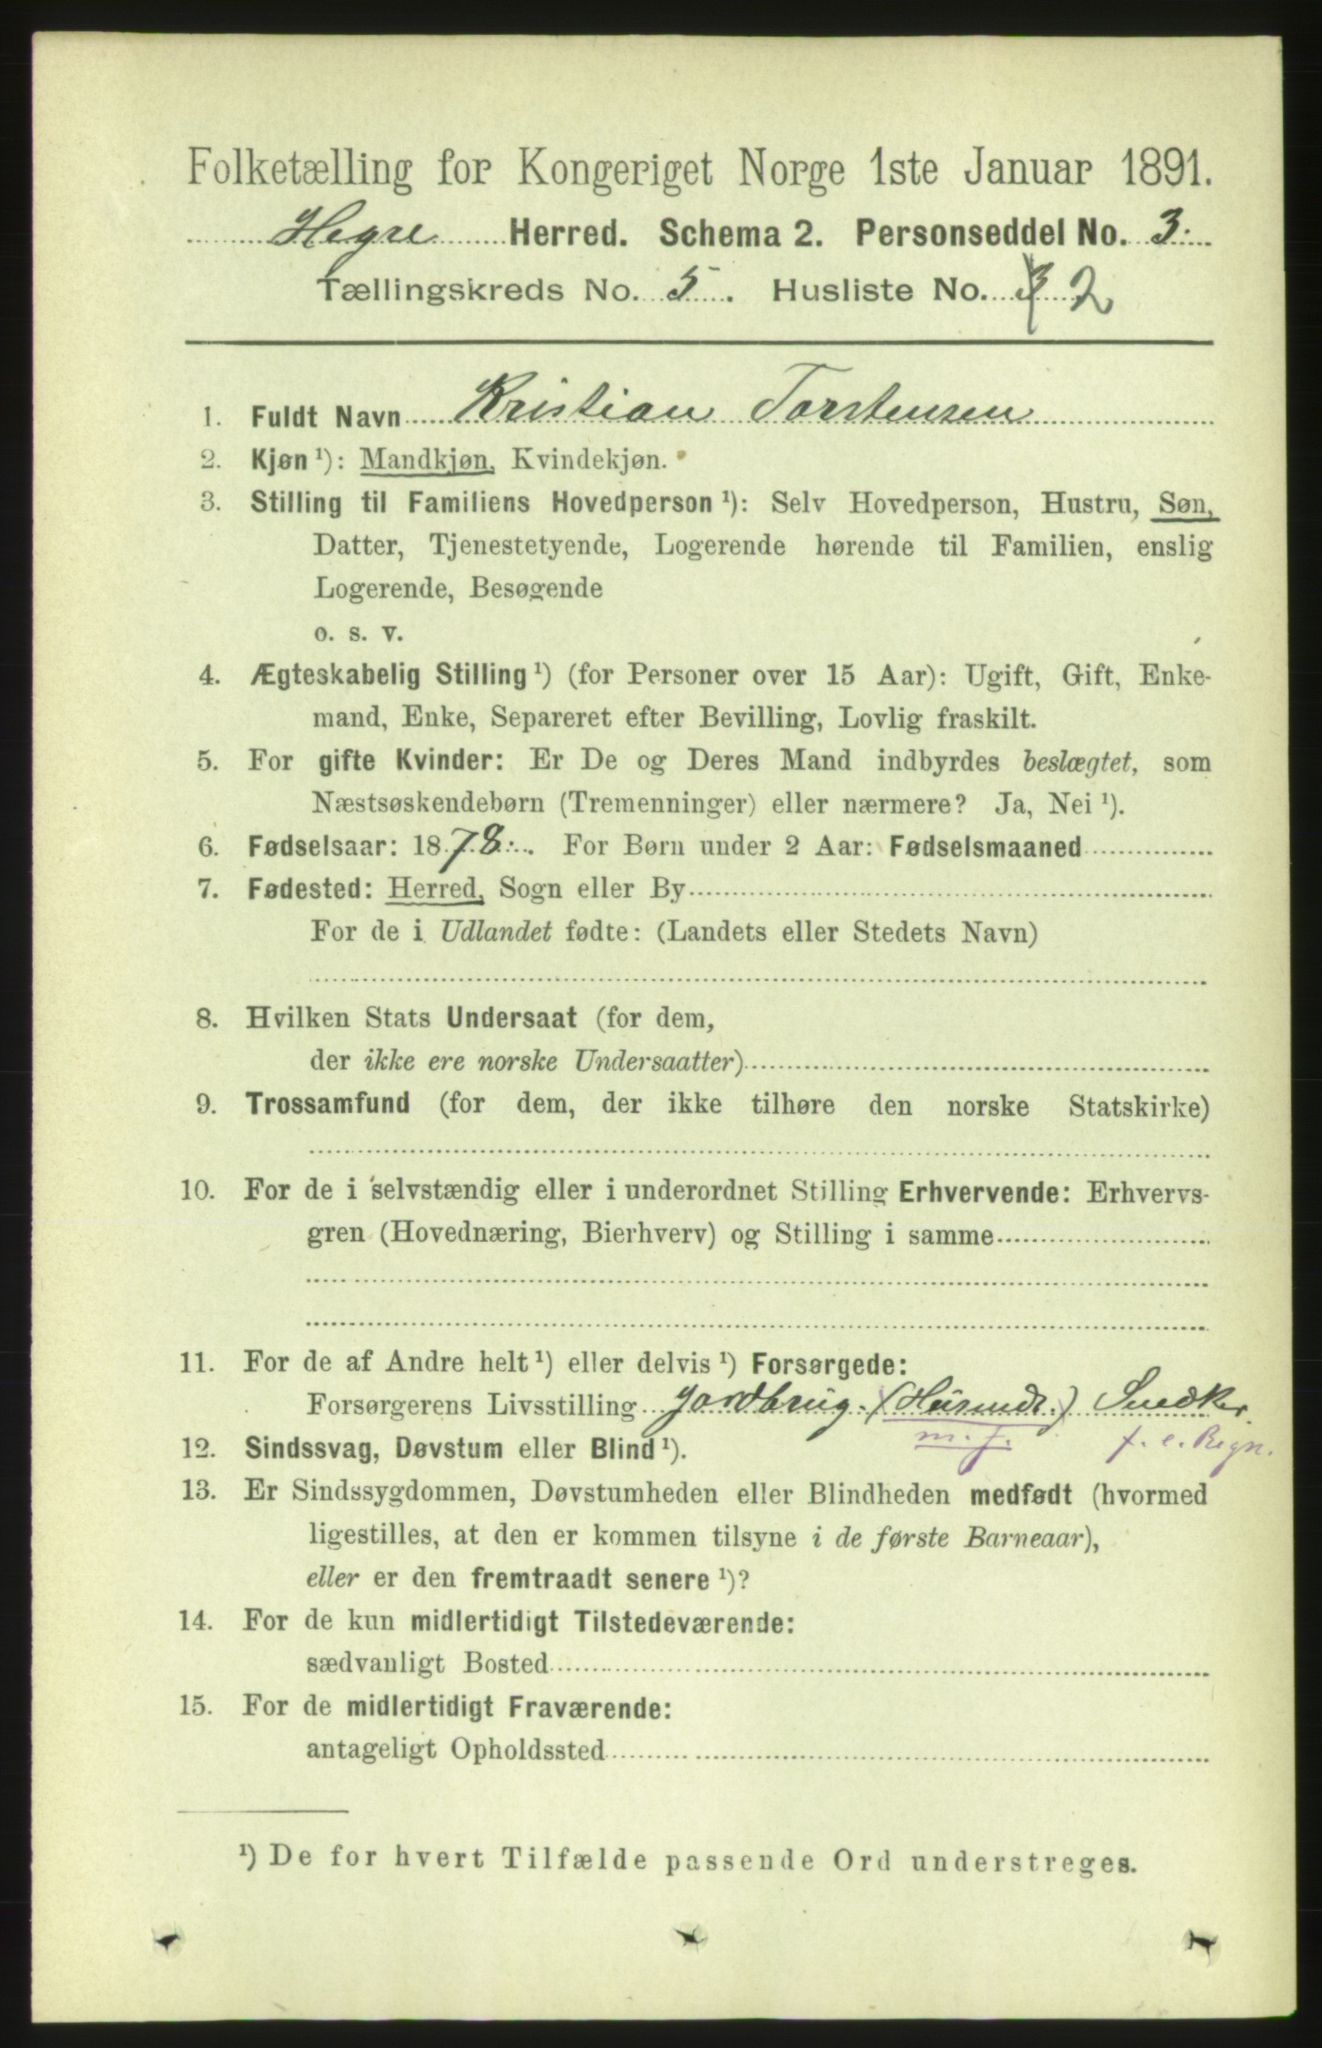 Folketælling for Kongeriget Norge 1ste Januar 1891.
Hegre Herred. Schema 2. Personseddel No. 3.
Tællingskreds No. 5. Husliste No. 3 2
1. Fuldt Navn Kristian Torstensen
2. Kjøn ¹): Mandkjøn, Kvindekjøn.
3. Stilling til Familiens Hovedperson ¹): Selv Hovedperson, Hustru, Søn,
Datter, Tjenestetyende, Logerende hørende til Familien, enslig
Logerende, Besøgende
o. s. v.
4. Ægteskabelig Stilling ¹) (for Personer over 15 Aar): Ugift, Gift, Enke-
mand, Enke, Separeret efter Bevilling, Lovlig fraskilt.
5. For gifte Kvinder: Er De og Deres Mand indbyrdes beslægtet, som
Næstsøskendebørn (Tremenninger) eller nærmere? Ja, Nei ¹).
6. Fødselsaar: 1878. For Børn under 2 Aar: Fødselsmaaned
7. Fødested: Herred, Sogn eller By
For de i Udlandet fødte: (Landets eller Stedets Navn)
8. Hvilken Stats Undersaat (for dem,
der ikke ere norske Undersaatter)
9. Trossamfund (for dem, der ikke tilhøre den norske Statskirke)
10. For de i selvstændig eller i underordnet Stilling Erhvervende: Erhvervs-
gren (Hovednæring, Bierhverv) og Stilling i samme
11. For de af Andre helt ¹) eller delvis ¹) Forsørgede:
Forsørgerens Livsstilling Jordbrug. (Husmd.) Snedker.
m. j. f. e. Regn.
12. Sindssvag, Døvstum eller Blind ¹).
13. Er Sindssygdommen, Døvstumheden eller Blindheden medfødt (hvormed
ligestilles, at den er kommen tilsyne i de første Barneaar),
eller er den fremtraadt senere ¹)?
14. For de kun midlertidigt Tilstedeværende:
sædvanligt Bosted
15. For de midlertidigt Fraværende:
antageligt Opholdssted
¹) De for hvert Tilfælde passende Ord understreges.